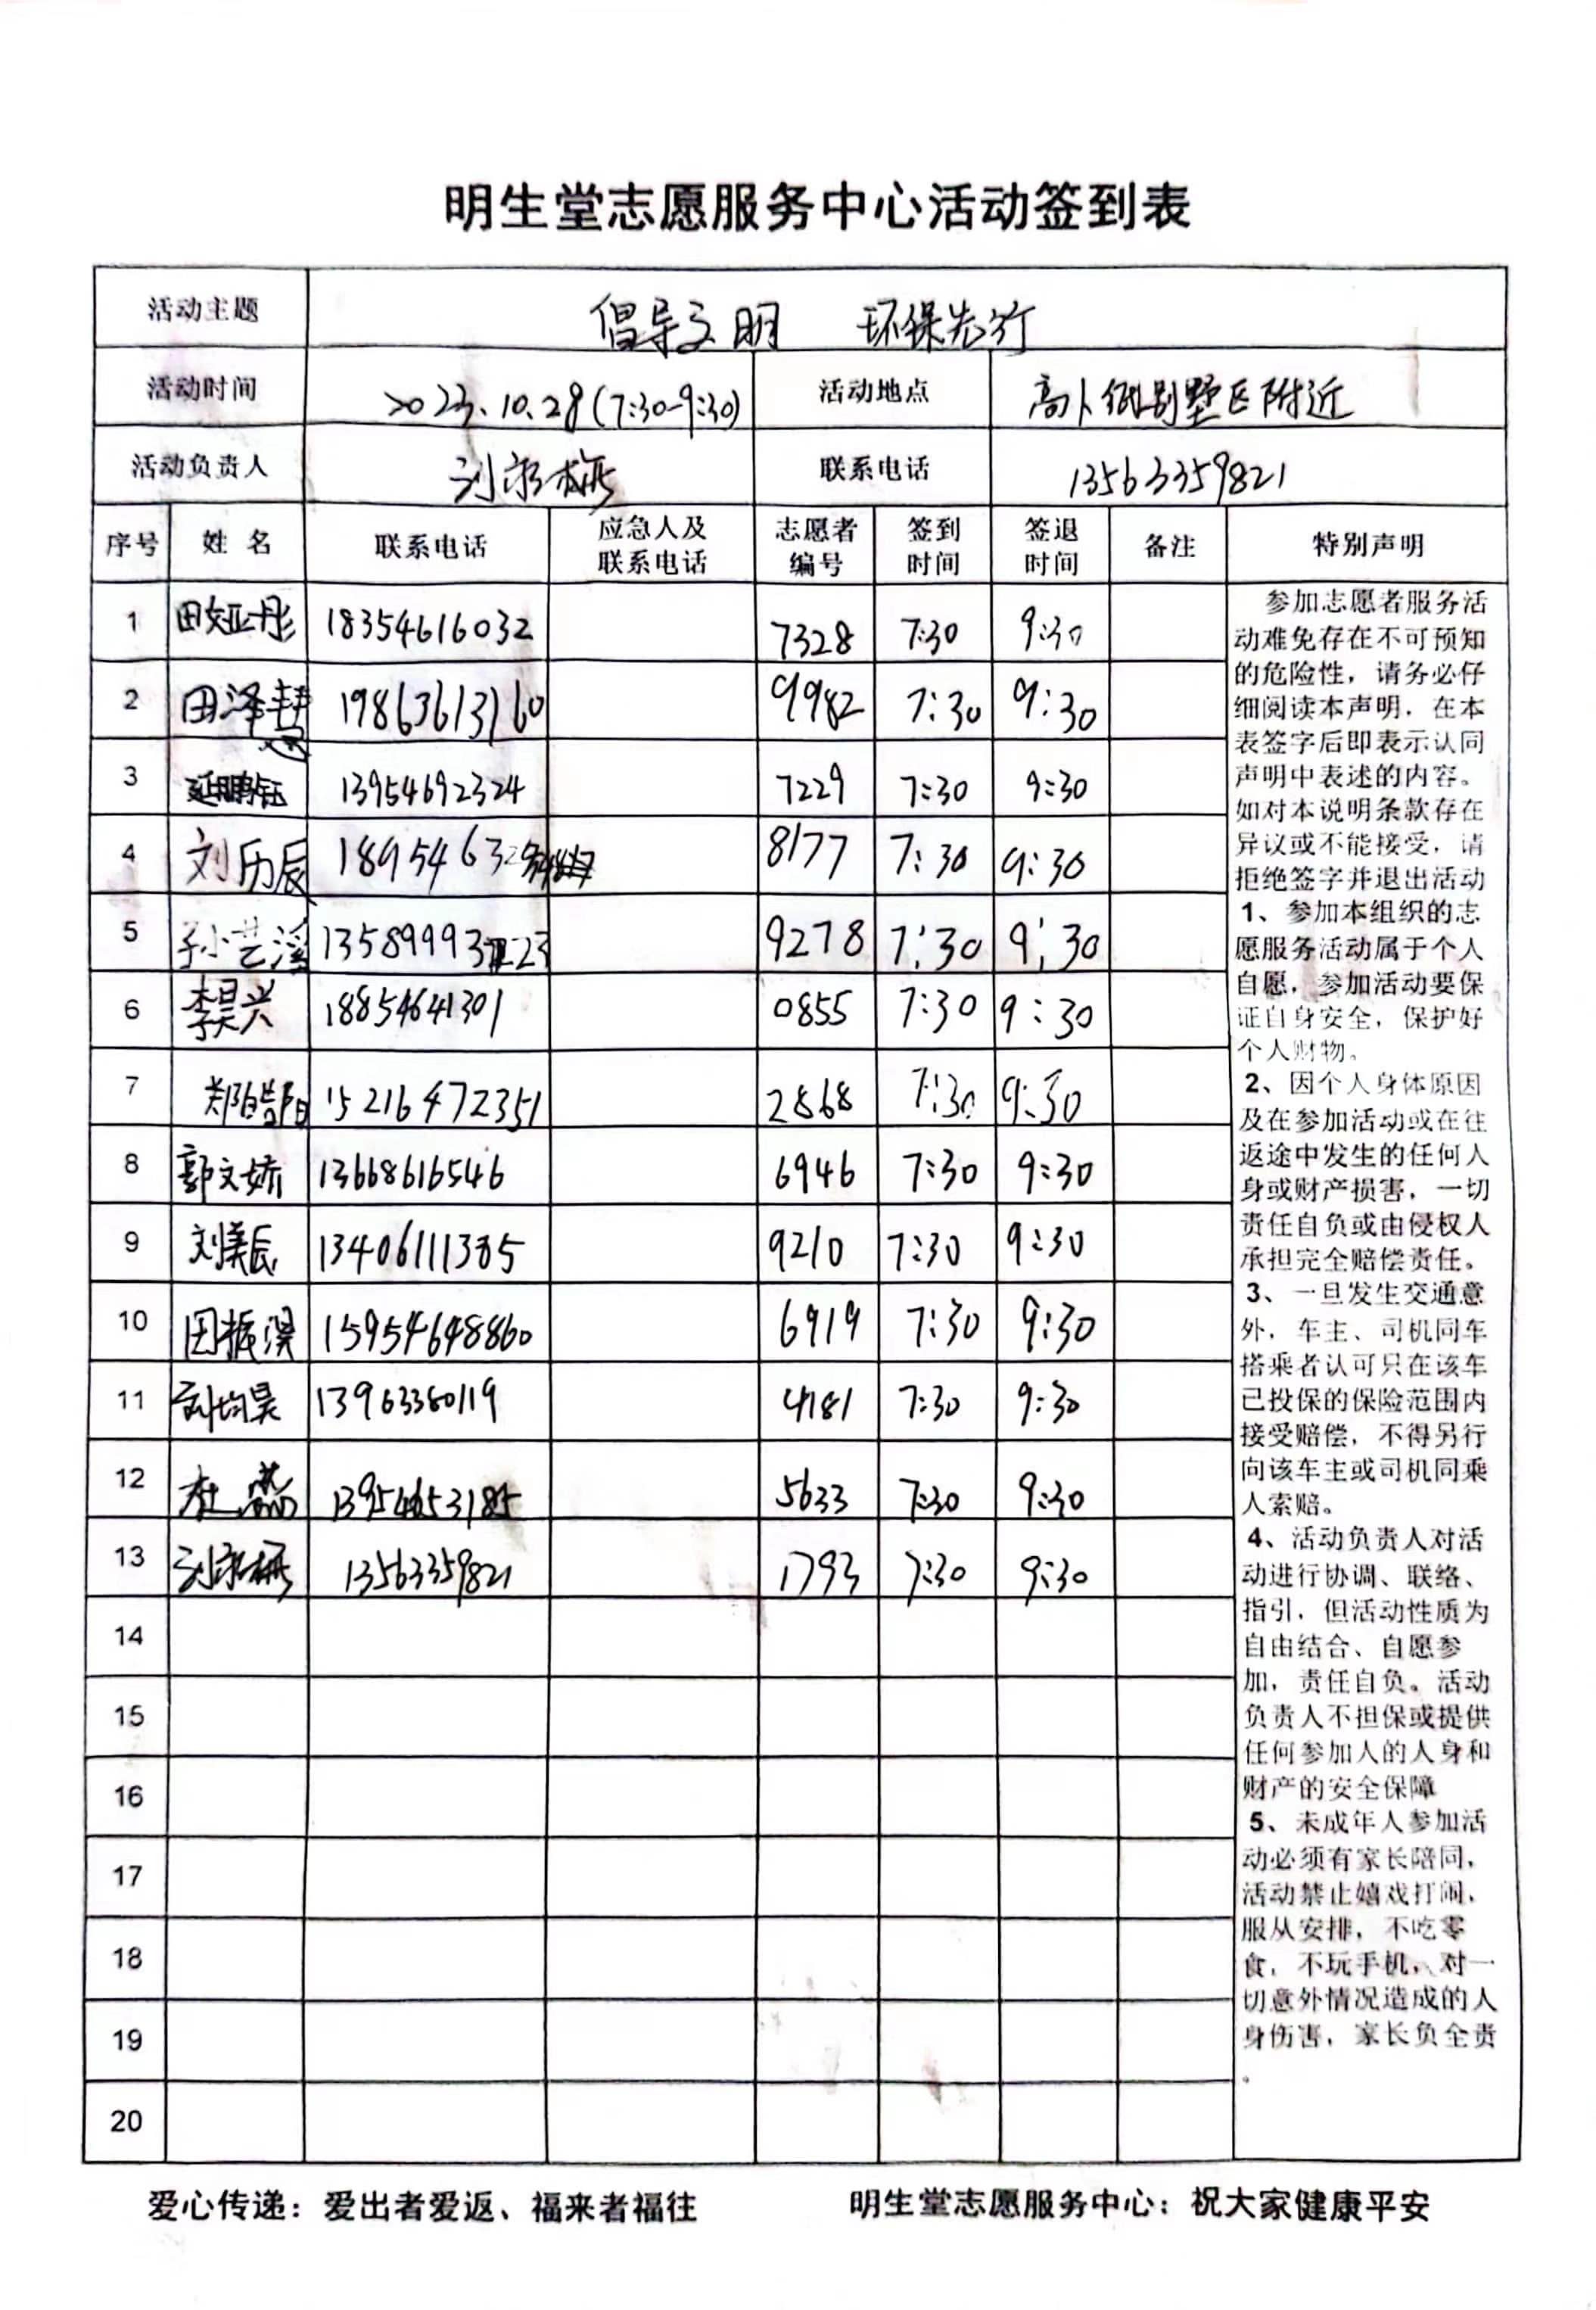 明生堂志愿服务中心活动签到表
活动主题 倡导文明 环保先行
活动时间 2023.10.28(7:30-9:30) 活动地点 高 别墅区附近
活动负责人 刘 梅 联系电话 13563359821
序号 姓名 联系电话 应急人及联系电话 志愿者编号 签到时间 签退时间 备注 特别声明
1 田 亚彤 18354616032 7328 7:30 9:30
2 田泽 19863613160 9982 7:30 9:30
3 延鹏钰 13954692324 7229 7:30 9:30
4 刘历辰 8177 7:30 9:30
5 孙艺溪 9278 7:30 9:30
6 李昊兴 18854641301 0855 7:30 9:30
7 郑皓阳 15216472351 2868 7:30 9:30
8 郭文娇 13668616546 6946 7:30 9:30
9 刘美辰 13406111385 9210 7:30 9:30
10 田振淏 15954648860 6919 7:30 9:30
11 刘均昊 13963380119 4181 7:30 9:30
12 杜 5633 7:30 9:30
13 刘 梅 13563359821 1793 7:30 9:30
14
15
16
17
18
19
20
参加志愿者服务活
动难免存在不可预知
的危险性，请务必仔
细阅读本声明，在本
表签字后即表示认同
声明中表述的内容。
如对本说明条款存在
异议或不能接受，请
拒绝签字并退出活动
1、参加本组织的志
愿服务活动属于个人
自愿，参加活动要保
证自身安全，保护好
个人财物。
2、因个人身体原因
及在参加活动或在往
返途中发生的任何人
身或财产损害，一切
责任自负或由侵权人
承担完全赔偿责任。
3、一旦发生交通意
外，车主、司机同车
搭乘者认可只在该车
已投保的保险范围内
接受赔偿，不得另行
向该车主或司机同乘
人索赔。
4、活动负责人对活
动进行协调、联络、
指引，但活动性质为
自由结合、自愿参
加，责任自负。活动
负责人不担保或提供
任何参加人的人身和
财产的安全保障
5、未成年人参加活
动必须有家长陪同，
活动禁止嬉戏打闹，
服从安排，不吃零
食，不玩手机，对一
切意外情况造成的人
身伤害，家长负全责
。
爱心传递：爱出者爱返、福来者福往 明生堂志愿服务中心：祝大家健康平安